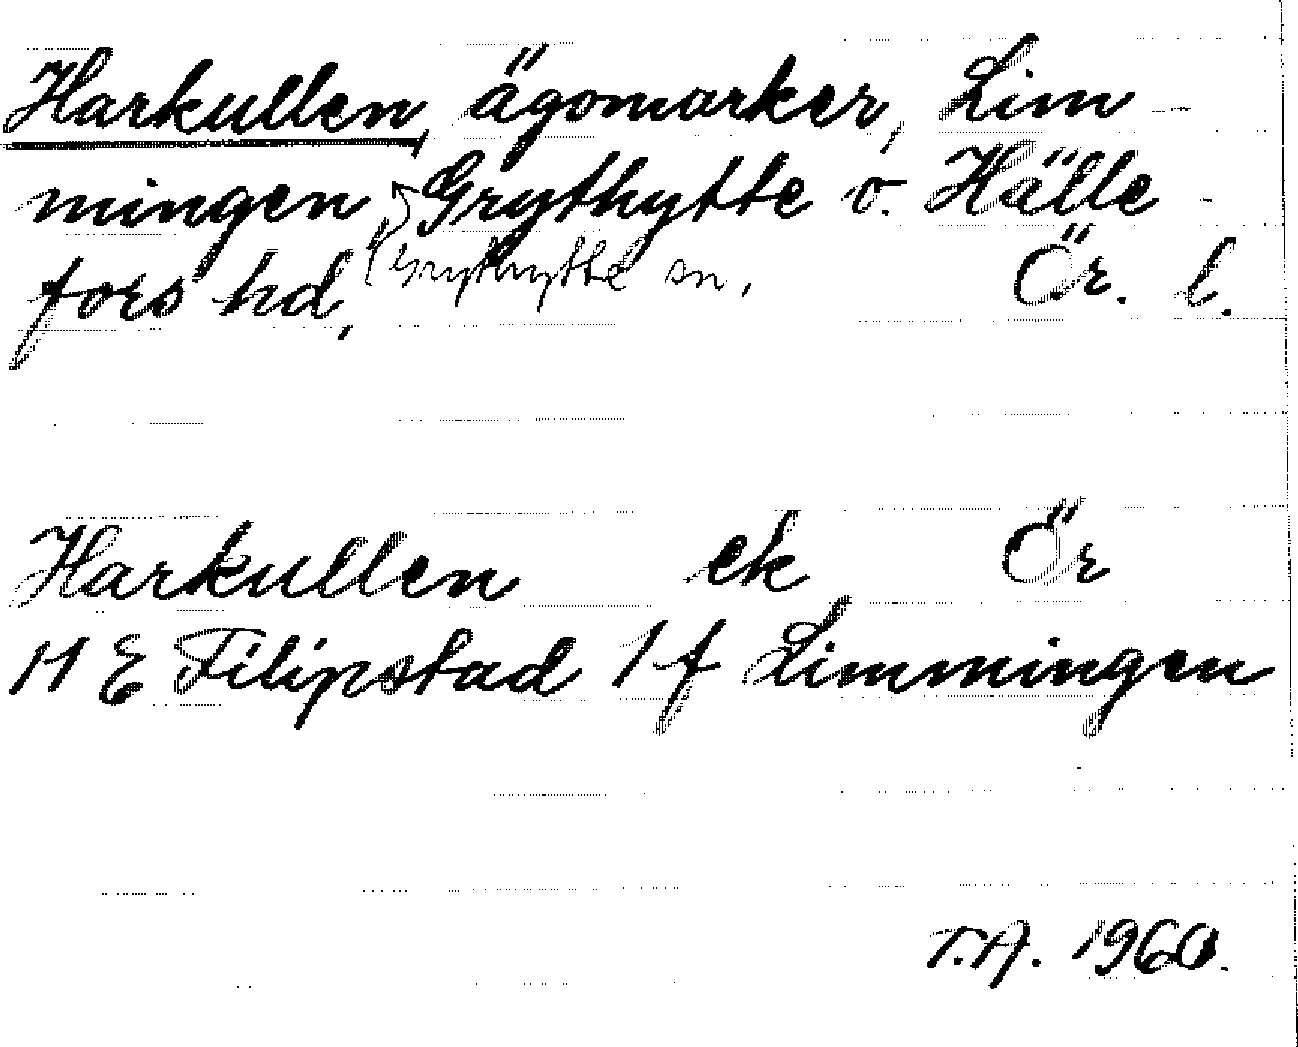 Harkullen, ägomarker, Lim-
mingen Grythytte o. Hälle-
fors hd, Grythytte sn, Ör. l.
Harkullen ek Ör
11 E Filipstad 1 f Limmingen
T.A. 1960.